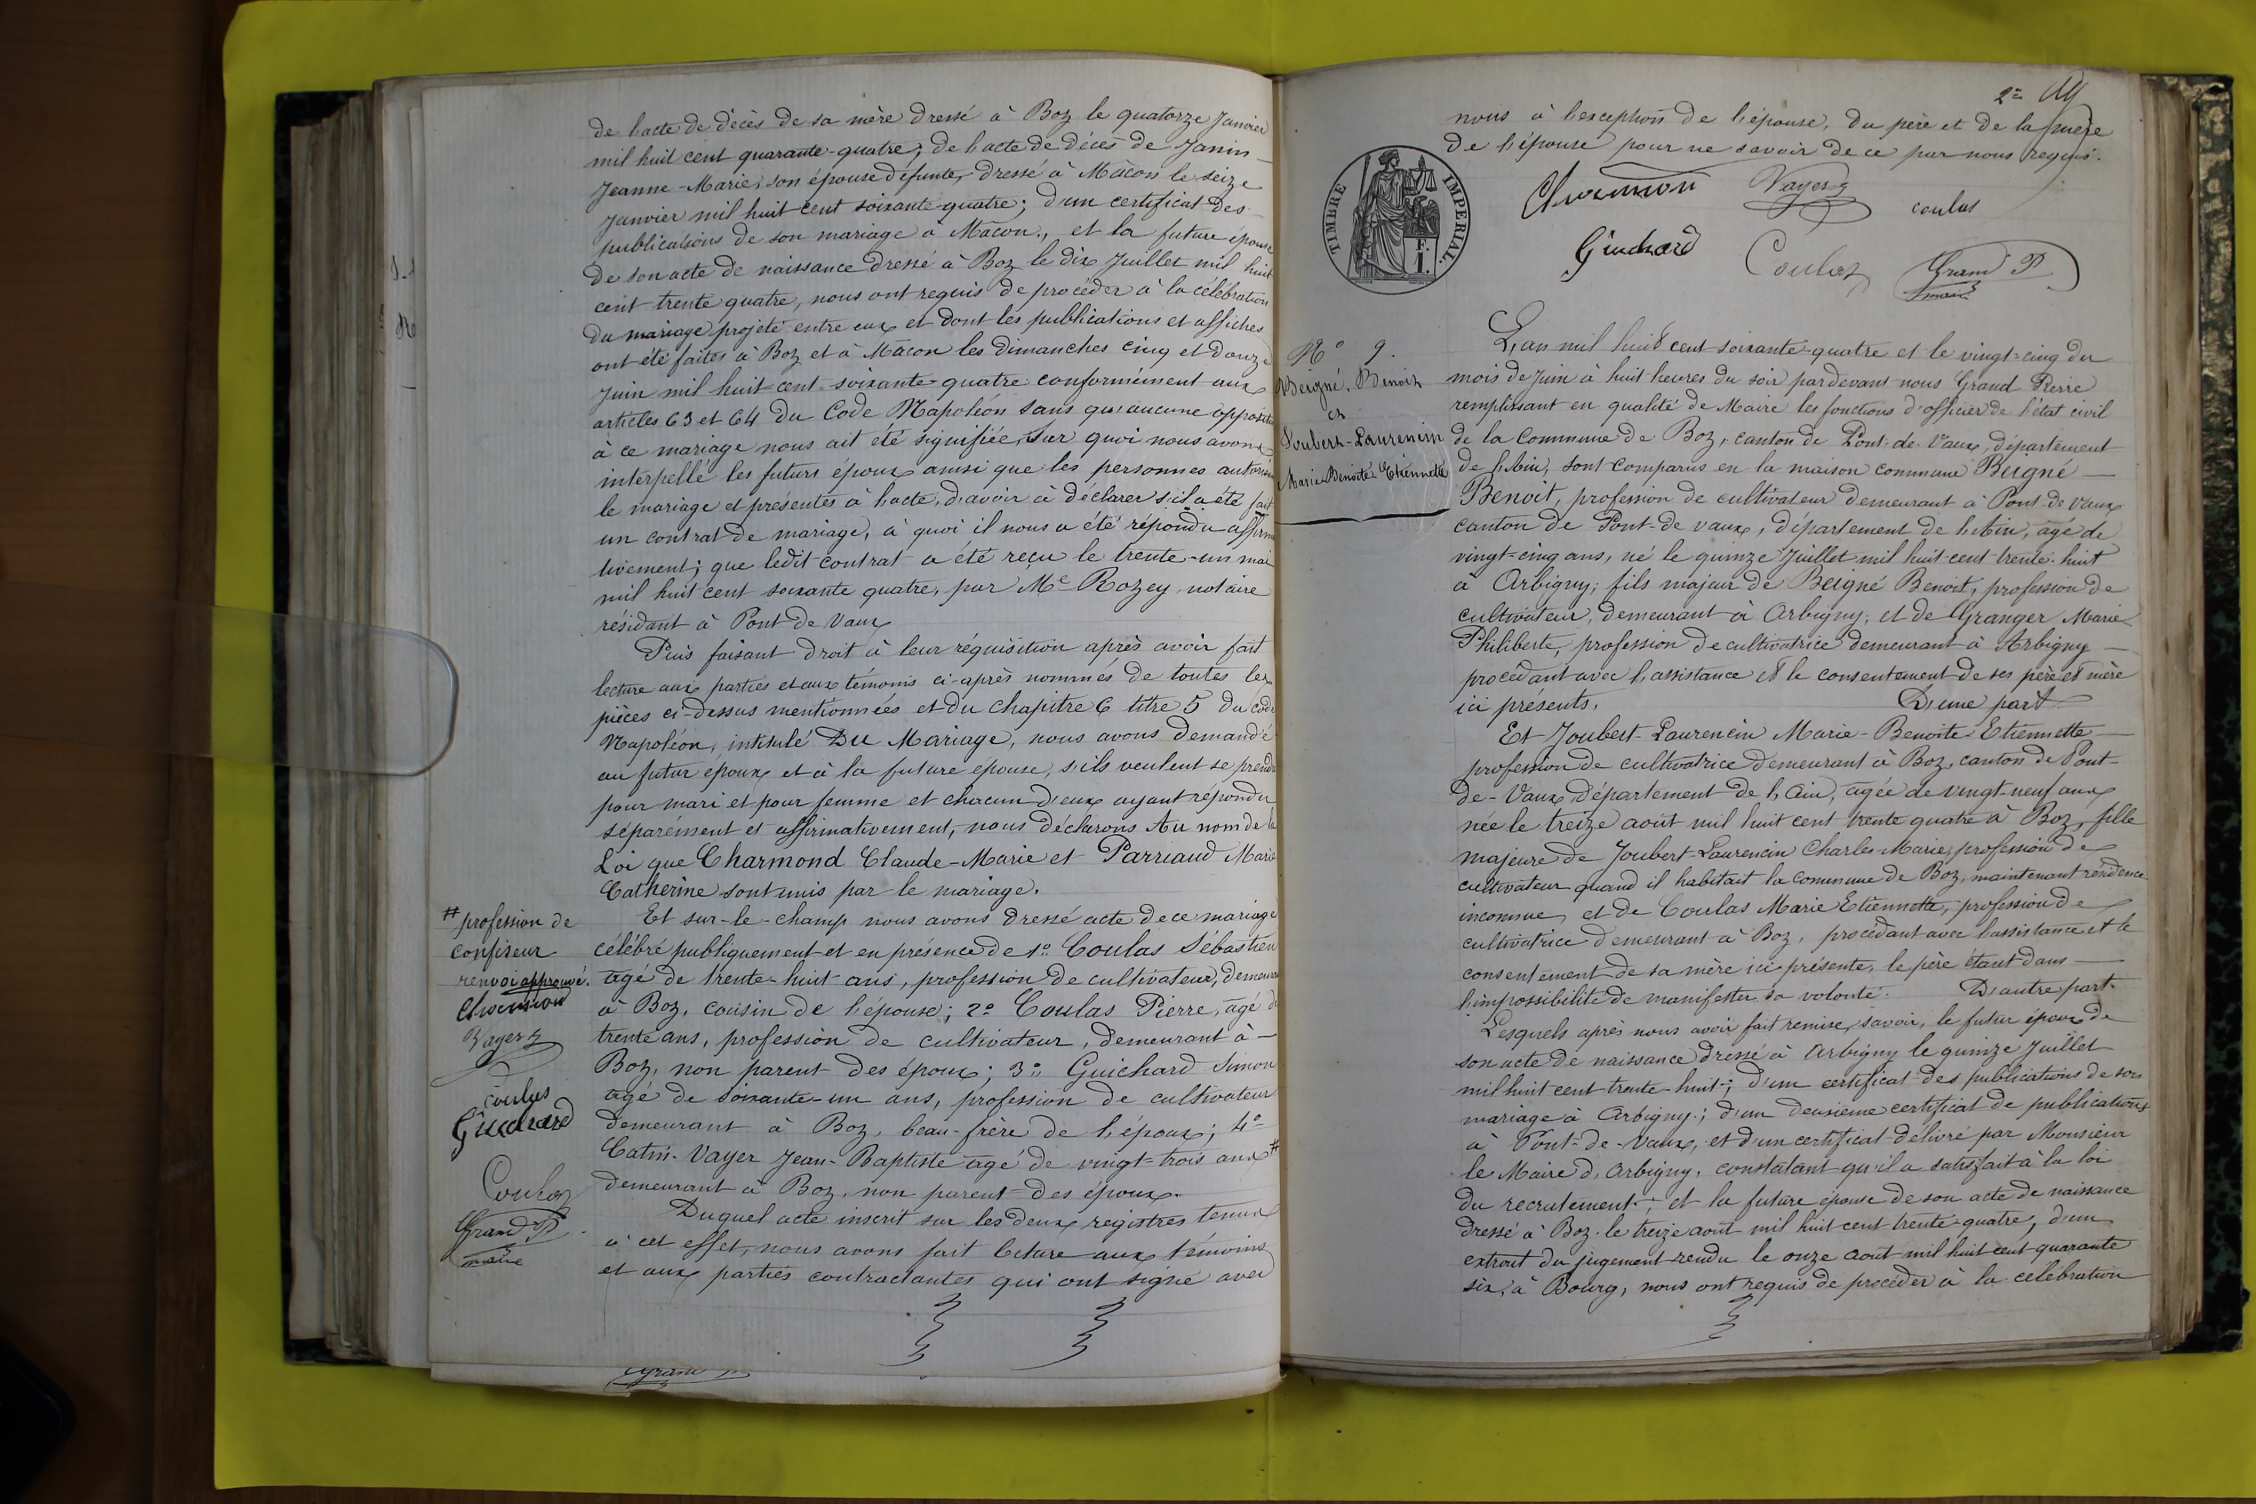 de l'acte de décès de sa mère dressé à Boz le quatorze Janvier
mil huit cent quarante-quatre; de l'acte de décès de Janin
Jeanne-Marie, son épouse défunte, dressé à Mâcon le seize
Janvier mil huit cent soixante-quatre; d'un certificat des
publications de son mariage à Mâcon, et la future épouse
de son acte de naissance dressé à Boz le dix Juillet mil huit
cent trente quatre, nous ont requis de procéder à la célébration
du mariage projeté entre eux et dont les publications et affiches
ont été faites à Boz et à Mâcon les dimanches cinq et douze
Juin mil huit cent soixante-quatre conformément aux
articles 63 et 64 du Code Napoléon sans qu'aucune opposition
à ce mariage nous ait été signifiée, sur quoi nous avons
interpellé les futurs époux ainsi que les personnes autorisant
le mariage et présentes à l'acte, d'avoir à déclarer s'il a été fait
un contrat de mariage, à quoi il nous a été répondu affirma
tivement; que ledit contrat a été reçu le trente-un mai
mil huit cent soixante quatre, par Me Rozey, notaire
résidant à Pont de Vaux
Puis faisant droit à leur réquisition après avoir fait
lecture aux parties et aux témoins ci-après nommés de toutes les
pièces ci-dessus mentionnées et du chapitre 6 titre 5 du code
Napoléon, intitulé Du Mariage, nous avons demandé
au futur époux et à la future épouse, s'ils veulent se prendre
pour mari et pour femme et chacun d'eux ayant répondu
séparément et affirmativement, nous déclarons Au nom de la
Loi que Charmond Claude-Marie et Parriaud Marie
Catherine sont unis par le mariage.
Et sur-le-champ nous avons dressé acte de ce mariage
célébré publiquement et en présence de 1o Coulas Sébastien
agé de trente-huit ans, profession de cultivateur, demeurant
à Boz, cousin de l'épouse; 2o Coulas Pierre, agé de
trente ans, profession de cultivateur, demeurant à
Boz, non parent des époux; 3o Guichard Simon
agé de soixante-un ans, profession de cultivateur
demeurant à Boz, beau-frère de l'époux; 4o
Catin-Vayer Jean-Baptiste agé de vingt-trois ans #
demeurant à Boz, non parent des époux.
Duquel acte inscrit sur les deux registres tenus
à cet effet, nous avons fait lecture aux témoins
et aux parties contractantes qui ont signé avec
# profession de
confiseur
renvoi approuvé.
Charmond
Vayer
coulas
Guichard
Coulas
Grand P
maire
Grand P
2e
nous à l'exception de l'épouse, du père et de la mère
de l'épouse pour ne savoir de ce par nous requis.
TIMBRE IMPERIAL
Charmond
Vayer
coulas
Guichard
Coulas
Grand P
maire
No 9.
Beigné, Benoit
et
Joubert-Laurencin
Marie-Benoite-Etiennette
L'an mil huit cent soixante-quatre et le vingt-cinq du
mois de Juin à huit heures du soir pardevant nous Grand Pierre
remplissant en qualité de Maire les fonctions d'officier de l'état civil
de la Commune de Boz, canton de Pont-de-Vaux, département
de l'Ain, sont comparus en la maison commune Beigné
Benoit, profession de cultivateur demeurant à Pont-de-Vaux
canton de Pont-de-vaux, département de l'Ain, agé de
vingt-cinq ans, né le quinze Juillet mil huit cent trente-huit
à Arbigny; fils majeur de Beigné Benoit, profession de
cultivateur, demeurant à Arbigny, et de Granger Marie
Philiberte, profession de cultivatrice demeurant à Arbigny
procédant avec l'assistance et le consentement de ses père et mère
ici présents. D'une part
Et Joubert-Laurencin Marie-Benoite-Etiennette
profession de cultivatrice demeurant à Boz, canton de Pont-
de-Vaux, département de l'Ain, agée de vingt-neuf ans
née le treize août mil huit cent trente quatre à Boz, fille
majeure de Joubert-Laurencin Charles-Marie, profession de
cultivateur quand il habitait la commune de Boz, maintenant résidence
inconnue, et de Coulas Marie Etiennette, profession de
cultivatrice demeurant à Boz, procédant avec l'assistance et le
consentement de sa mère ici présente, le père étant dans
l'impossibilité de manifester sa volonté. D'autre part.
Lesquels après nous avoir fait remise, savoir, le futur époux de
son acte de naissance dressé à Arbigny le quinze Juillet
mil huit cent trente-huit; d'un certificat des publications de son
mariage à Arbigny; d'un deuxième certificat de publications
à Pont-de-Vaux, et d'un certificat délivré par Monsieur
le Maire d'Arbigny, constatant qu'il a satisfait à la loi
du recrutement; et la future épouse de son acte de naissance
dressé à Boz le treize août mil huit cent trente-quatre, d'un
extrait du jugement rendu le onze août mil huit cent quarante
six, à Bourg, nous ont requis de procéder à la célébration